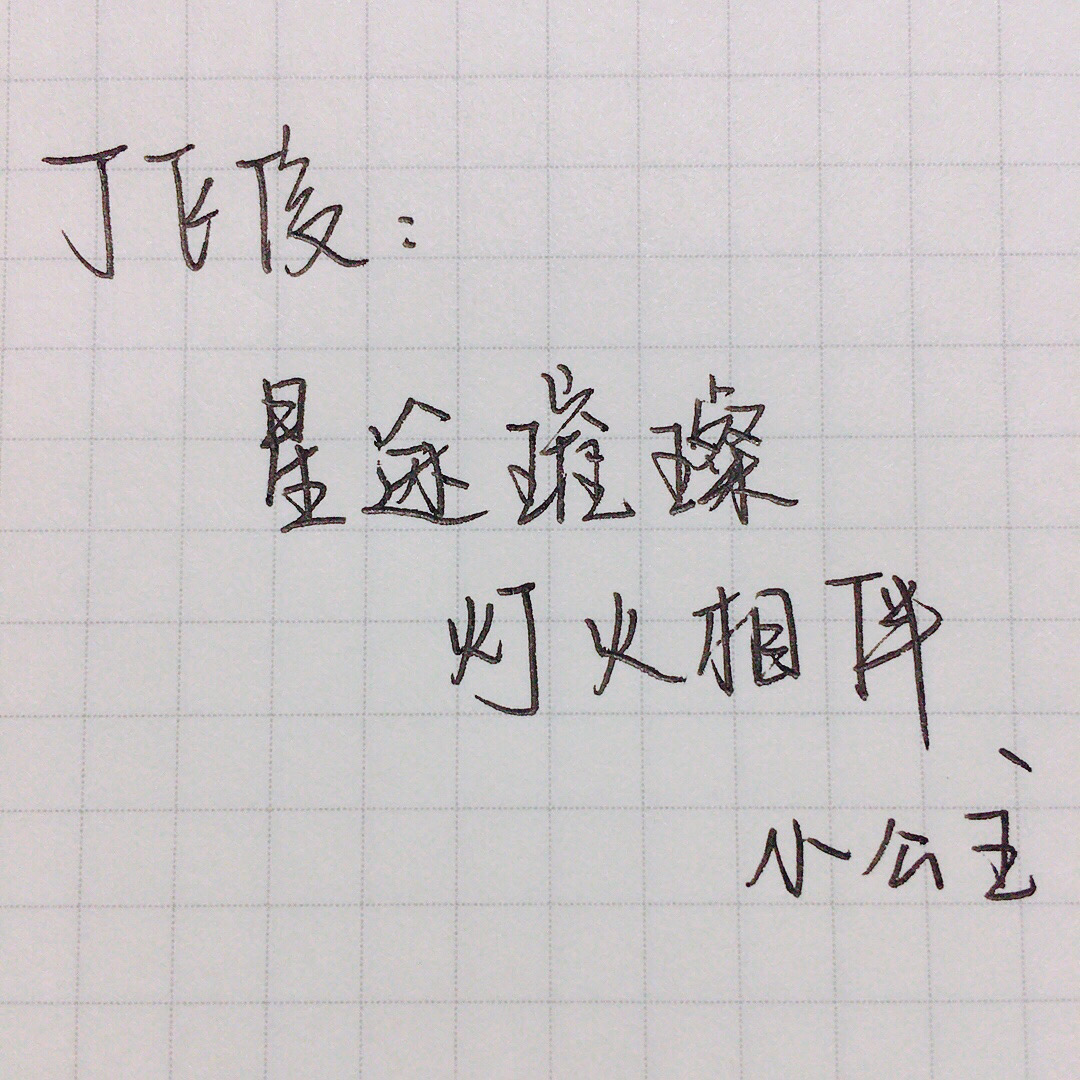 丁飞俊：
星途璀璨
灯火相伴
小公主